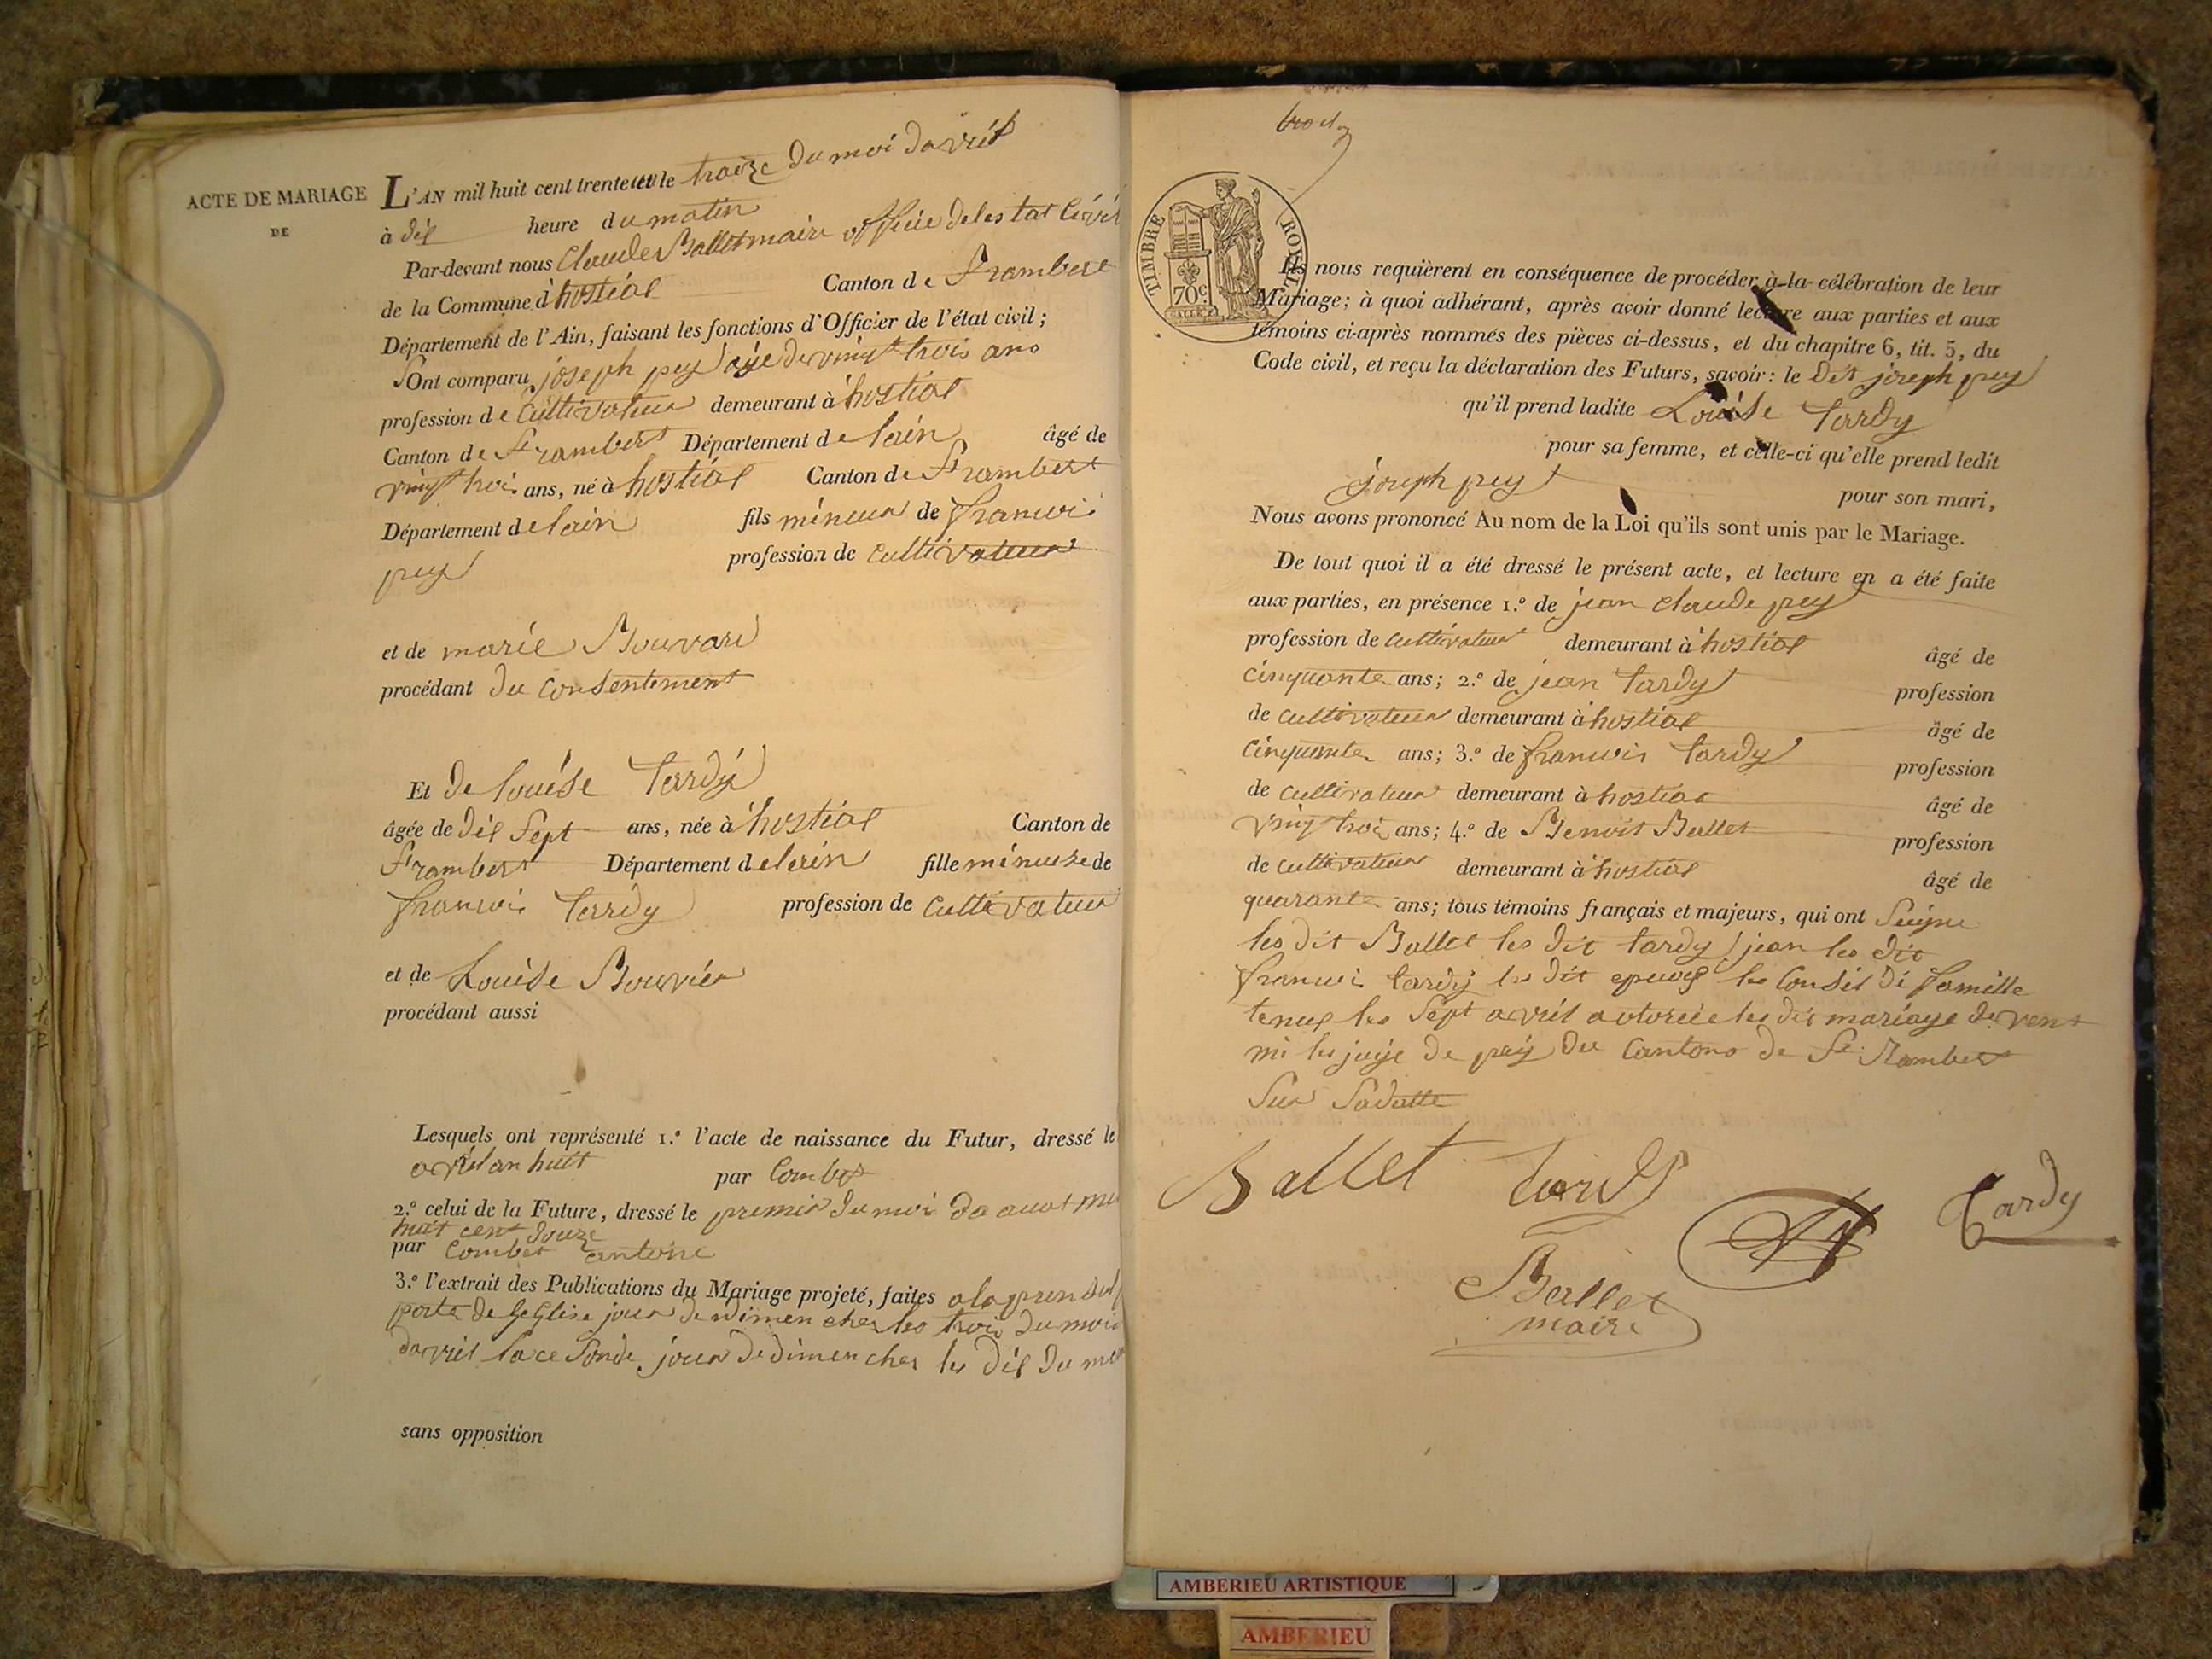 ACTE DE MARIAGE
DE
L'AN mil huit cent trente le traize du moi davril
à dis heure du matin
Par-devant nous Claude Ballet maire officie de les tat Civil
de la Commune d'hostias Canton de St rambert
Département de l'Ain, faisant les fonctions d'Officier de l'état civil;
Ont comparu joseph pey age de vingt trois ans
profession de Cultivateur demeurant à hostias
Canton de St rambert Département de lain âgé de
vingt troi ans, né à hostias Canton de St rambert
Département de lain fils mineur de francoi
pey profession de Cultivateur
et de marie Bouvard
procédant du Consentement
Et de louise tardy
âgée de dis Sept ans, née à hostias Canton de
St rambert Département de lain fille mineure de
francoi tardy profession de Cultivateur
et de Louise Bouvier
procédant aussi
Lesquels ont représenté 1.º l'acte de naissance du Futur, dressé le
avril an huit par Combet
2.º celui de la Future, dressé le premir du moi da auot mil
huit cent douze
par Combet antoine
3.º l'extrait des Publications du Mariage projeté, faites a la prensipal
porte de leglise jour de dimenches les troi du moi
davril la ce Sonde jour de dimenches les dis du moi
sans opposition
TIMBRE ROYAL
70c.
Ils nous requièrent en conséquence de procéder à la célébration de leur
Mariage; à quoi adhérant, après avoir donné lecture aux parties et aux
témoins ci-après nommés des pièces ci-dessus, et du chapitre 6, tit. 5, du
Code civil, et reçu la déclaration des Futurs, savoir: le dit joseph pey
qu'il prend ladite Louise tardy
pour sa femme, et celle-ci qu'elle prend ledit
joseph pey pour son mari,
Nous avons prononcé Au nom de la Loi qu'ils sont unis par le Mariage.
De tout quoi il a été dressé le présent acte, et lecture en a été faite
aux parties, en présence 1.º de jean claude pey
profession de cultivateur demeurant à hostias âgé de
cinquante ans; 2.º de jean tardy profession
de cultivateur demeurant à hostias âgé de
cinquante ans; 3.º de francois tardy profession
de cultivateur demeurant à hostias âgé de
vingt troi ans; 4.º de Benoit Ballet profession
de cultivateur demeurant à hostias âgé de
quarante ans; tous témoins français et majeurs, qui ont Seigne
les dit Ballet les dit tardy jean les dit
francoi tardy les dit epoux les Consil di famille
tenus les Sept avril autorise les dit mariage de vent
mi les juge de pais du Cantons de St Rambert
Sur
Ballet tardy Tardy
Ballet
maire
AMBERIEU ARTISTIQUE
AMBERIEU